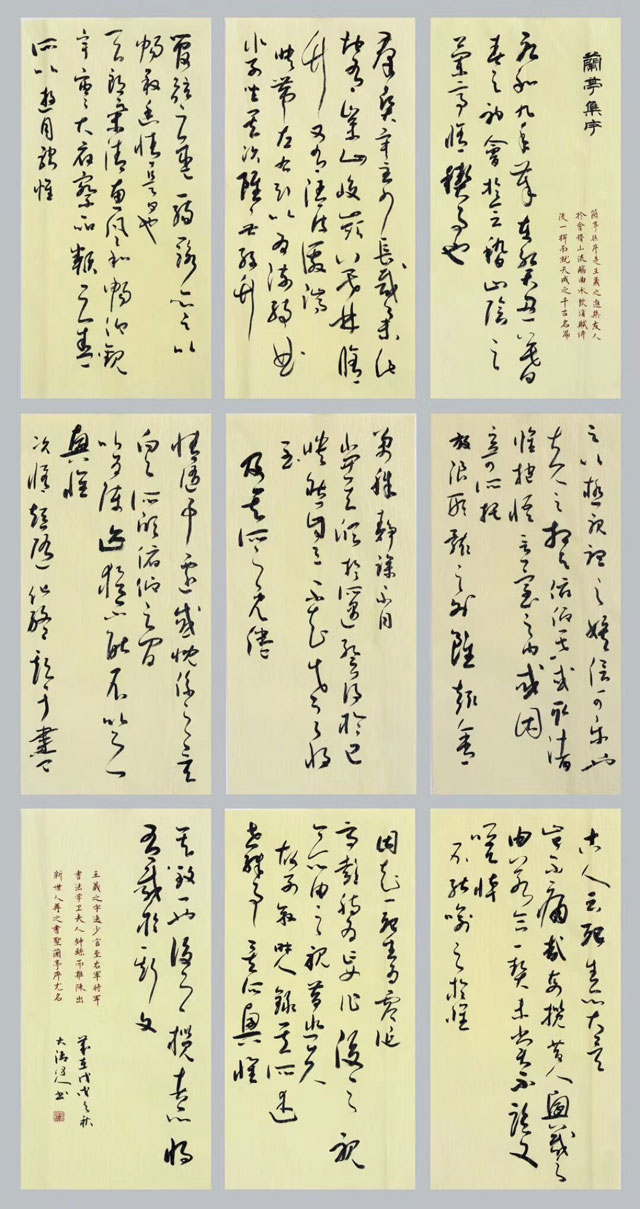 蘭亭集序
永和九年歲在癸丑暮
春之初會於會稽山陰之
蘭亭脩禊事也
蘭亭集序是王羲之邀集友人
於會稽山流觴曲水飲酒賦詩
後一揮而就天成之千古名篇
群賢畢至少長咸集此
地有崇山峻嶺茂林脩
竹又有清流激湍
映帶左右引以為流觴曲
水列坐其次雖無絲竹
管弦之盛一觴一詠亦足以
暢敘幽情是日也
天朗氣清惠風和暢仰觀
宇宙之大府察品類之盛
所以遊目騁懷
足以極視聽之娛信可樂也
夫人之相與俯仰一世或取諸
懷抱悟言一室之內或因
寄所託
放浪形骸之外雖趣舍
萬殊靜躁不同
當其欣於所遇暫得於己
快然自足不知老之將
至
及其所之既倦
情隨事遷感慨係之矣
向之所欣俯仰之間
以為陳迹猶不能不以之
興懷
況脩短隨化終期於盡
古人云死生亦大矣
豈不痛哉每攬昔人興感之
由若合一契未嘗不臨文
嗟悼
不能喻之於懷
固知一死生為虛誕
齊彭殤為妄作後之視
今亦由今之視昔悲夫
故列敘時人錄其所述
世殊事異所以興懷
其致一也後之攬者亦將
有感於斯文
王羲之字逸少官至右軍將軍
書法學卫夫人鍾繇而推陳出
新世人尊之書聖蘭亭序尤名
歲在戊戌之秋